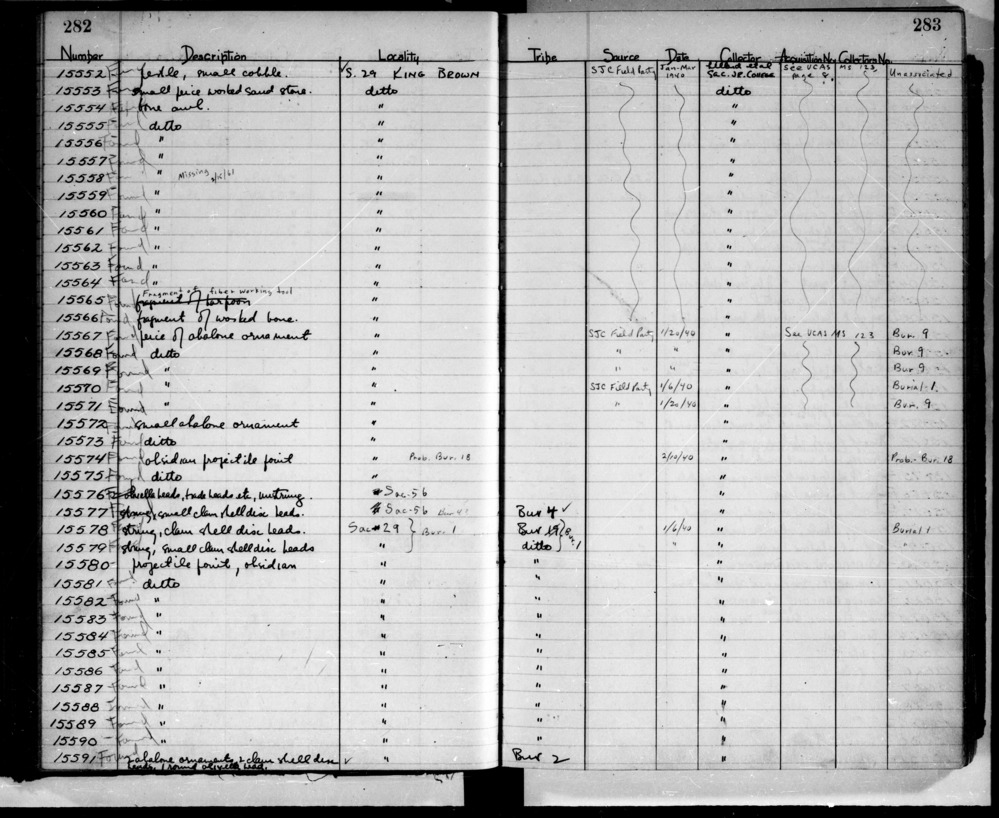 282
283
Number Description Locality Tribe Source Date Collector Acquisition No. Collectors No.
15552 Found pestle, small cobble. ✓ S. 29 KING BROWN SJC Field Party Jan-Mar 1940 et al Sac. Jr. College See UCAS page 8, MS 123, Unassociated
15553 Found small piece worked sand stone. ditto ditto
15554 bone awl. " "
15555 Found ditto " "
15556 Found " " "
15557 Found " " "
15558 " Missing " "
15559 Found " " "
15560 Found " " "
15561 Found " " "
15562 Found " " "
15563 Found " " "
15564 Found " " "
Fragment of fiber working tool
15565 Found fragment of harpoon " "
15566 Found fragment of worked bone. " "
15567 Found piece of abalone ornament " SJC Field Party 1/20/40 " See UCAS MS 123 Bur. 9
15568 Found ditto " " " " Bur 9
15569 Found " " " " " Bur 9
15570 Found " " SJC Field Party 1/6/40 " Burial-1
15571 Found " " " 1/20/40 " Bur. 9
15572 Found small abalone ornament " "
15573 Found ditto " "
15574 Found obsidian projectile point " Prob. Bur. 18 2/10/40 " Prob.- Bur. 18
15575 Found ditto " "
15576 olivella beads, trade beads etc, unstrung. # Sac-56 "
15577 string, small clam shell disc beads. # Sac-56 Bur 4 Bur 4 ✓ "
15578 string, clam shell disc beads. Sac # 29 } Bur. 1 Bur 19 } Bur. 1 1/6/40 " Burial 1
15579 string, small clam shell disc beads " ditto " " " "
15580 projectile point, obsidian " " "
15581 Found ditto " " "
15582 Found " " " "
15583 Found " " " "
15584 Found " " " "
15585 Found " " " "
15586 Found " " " "
15587 Found " " " "
15588 Found " " " "
15589 Found " " " "
15590 Found " " " "
15591 Found 2 abalone ornaments, 2 clam shell disc ✓ " Bur 2 "
beads, 1 round olivella bead.